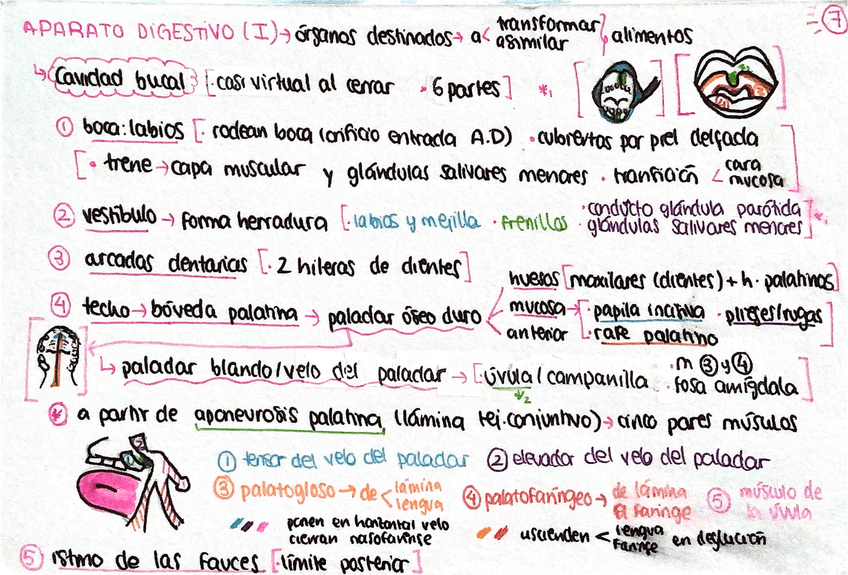 7
APARATO DIGESTIVO (I) → órganos destinados → a < transformar asimilar } alimentos
↳ Cavidad bucal [· casi virtual al cerrar · 6 partes] *₁
① boca: labios [· rodean boca (orificio entrada A.D) · cubiertos por piel delgada
[· tiene → capa muscular y glándulas salivares menores · transición < cara mucosa
② vestíbulo → forma herradura [· labios y mejilla · frenillos · conducto glándula parótida · glándulas salivares menores]
③ arcadas dentarias [· 2 hileras de dientes]
④ techo → bóveda palatina → paladar óseo duro
huesos [maxilares (dientes) + h. palatinos]
mucosa → [· papila incisiva · pliegues/rugas]
anterior [· rafe palatino
↳ paladar blando/velo del paladar → [· úvula/campanilla · m ③ y ④ · fosa amígdala]
*₂
* a partir de aponeurosis palatina (lámina tej. conjuntivo) → cinco pares músculos
① tensor del velo del paladar ② elevador del velo del paladar
③ palatogloso → de < lámina lengua ④ palatofaríngeo → de lámina a faringe ⑤ músculo de la úvula
ponen en horizontal velo cierran nasofaringe
ascienden < lengua faringe en deglución
⑤ istmo de las fauces [· límite posterior]